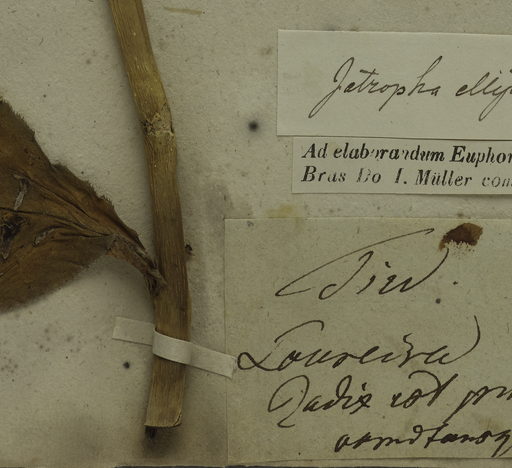 Jatropha ellip
Ad elaborandum Euphor
Bras Do I. Müller com
Loureira
Radix est